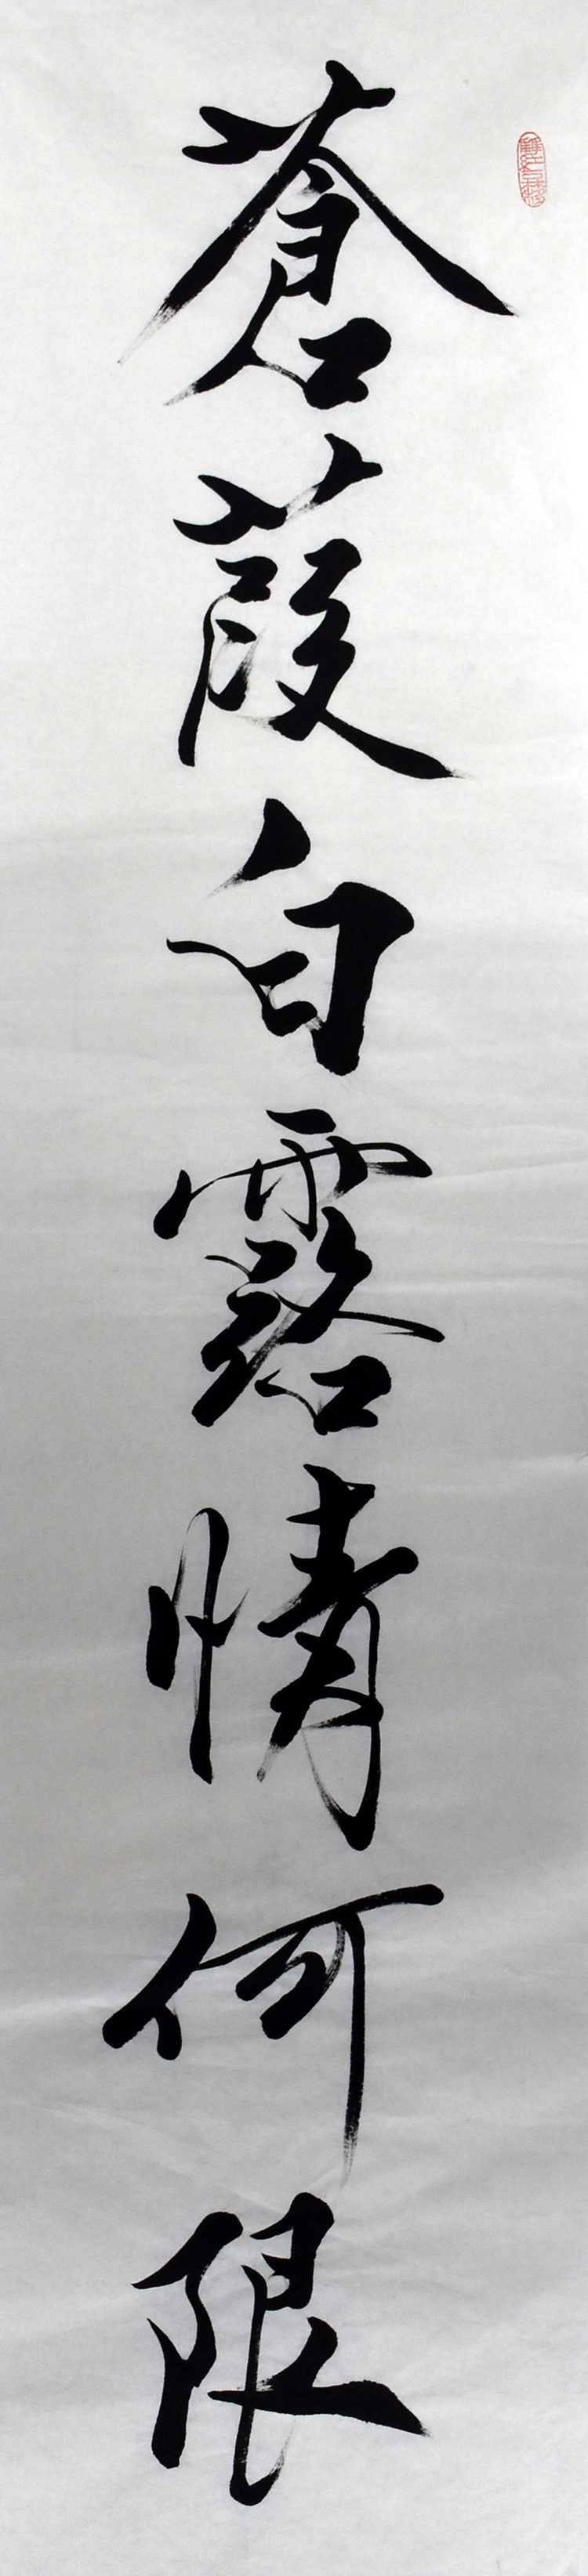 蒼葭白露情何限